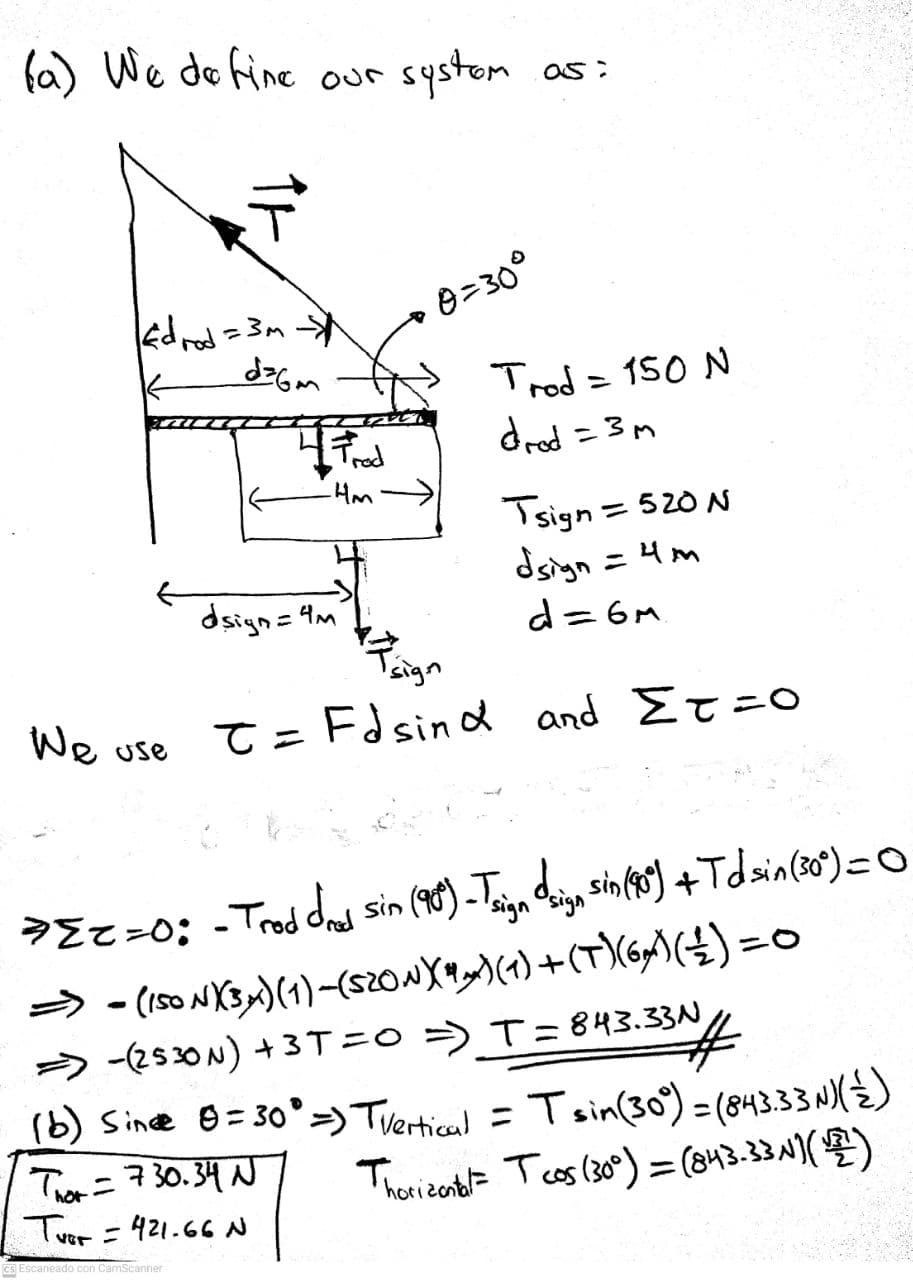 (a) We define our system as:
T⃗
θ=30°
d rod = 3m
d=6m
T rod = 150 N
d rod = 3m
T⃗ rod
4m
T sign = 520 N
d sign = 4m
d = 6m
d sign = 4m
T⃗ sign
We use τ = Fd sin α and Στ=0
⇒Στ=0: - Trod drod sin (90°) - Tsign dsign sin(90°) + Td sin(30°)=0
⇒ - (150 N)(3m)(1) - (520 N)(4m)(1) + (T)(6m)(1/2) = 0
⇒ -(2530 N) + 3T = 0 ⇒ T = 843.33N //
(b) Since θ = 30° ⇒ Tvertical = T sin(30°) = (843.33 N)(1/2)
Thorizontal = T cos (30°) = (843.33 N)(√3/2)
Thor = 730.34 N
Tver = 421.66 N
CS Escaneado con CamScanner